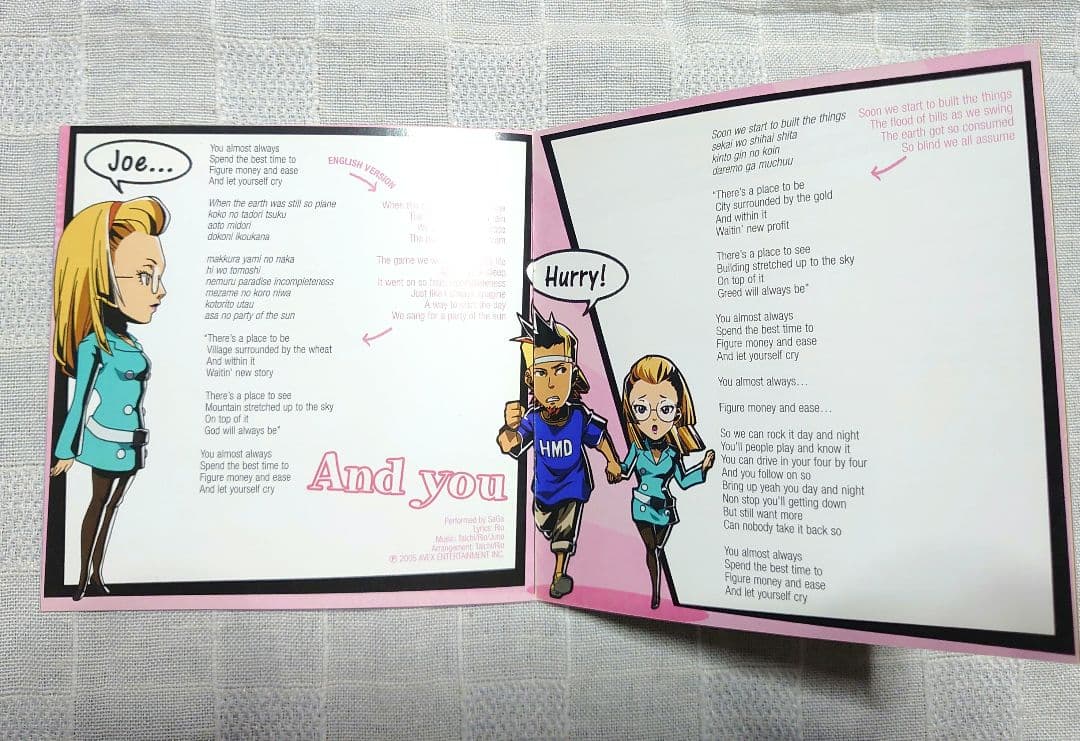 Joe...
You almost always
Spend the best time to
Figure money and ease
And let yourself cry
ENGLISH VERSION
When the earth was still so plane
koko no tadori tsuku
aoto midori
dokoni ikoukana
makkura yami no naka
hi wo tomoshi
nemuru paradise incompleteness
mezame no koro niwa
kotorito utau
asa no party of the sun
When the
The
The
The game we
life
It went on so
Just like
imagine
A way to
day
We sang for a party of the sun
"There's a place to be
Village surrounded by the wheat
And within it
Waitin' new story
There's a place to see
Mountain stretched up to the sky
On top of it
God will always be"
You almost always
Spend the best time to
Figure money and ease
And let yourself cry
And you
Performed by SaGa
Lyrics: Rio
Music: Taichi/Rio/Juno
Arrangement: Taichi/Rio
℗ 2005 AVEX ENTERTAINMENT INC.
Hurry!
HMD
Soon we start to built the things
sekai wo shihai shita
kinto gin no koin
daremo ga muchuu
Soon we start to built the things
The flood of bills as we swing
The earth got so consumed
So blind we all assume
"There's a place to be
City surrounded by the gold
And within it
Waitin' new profit
There's a place to see
Building stretched up to the sky
On top of it
Greed will always be"
You almost always
Spend the best time to
Figure money and ease
And let yourself cry
You almost always...
Figure money and ease...
So we can rock it day and night
You'll people play and know it
You can drive in your four by four
And you follow on so
Bring up yeah you day and night
Non stop you'll getting down
But still want more
Can nobody take it back so
You almost always
Spend the best time to
Figure money and ease
And let yourself cry